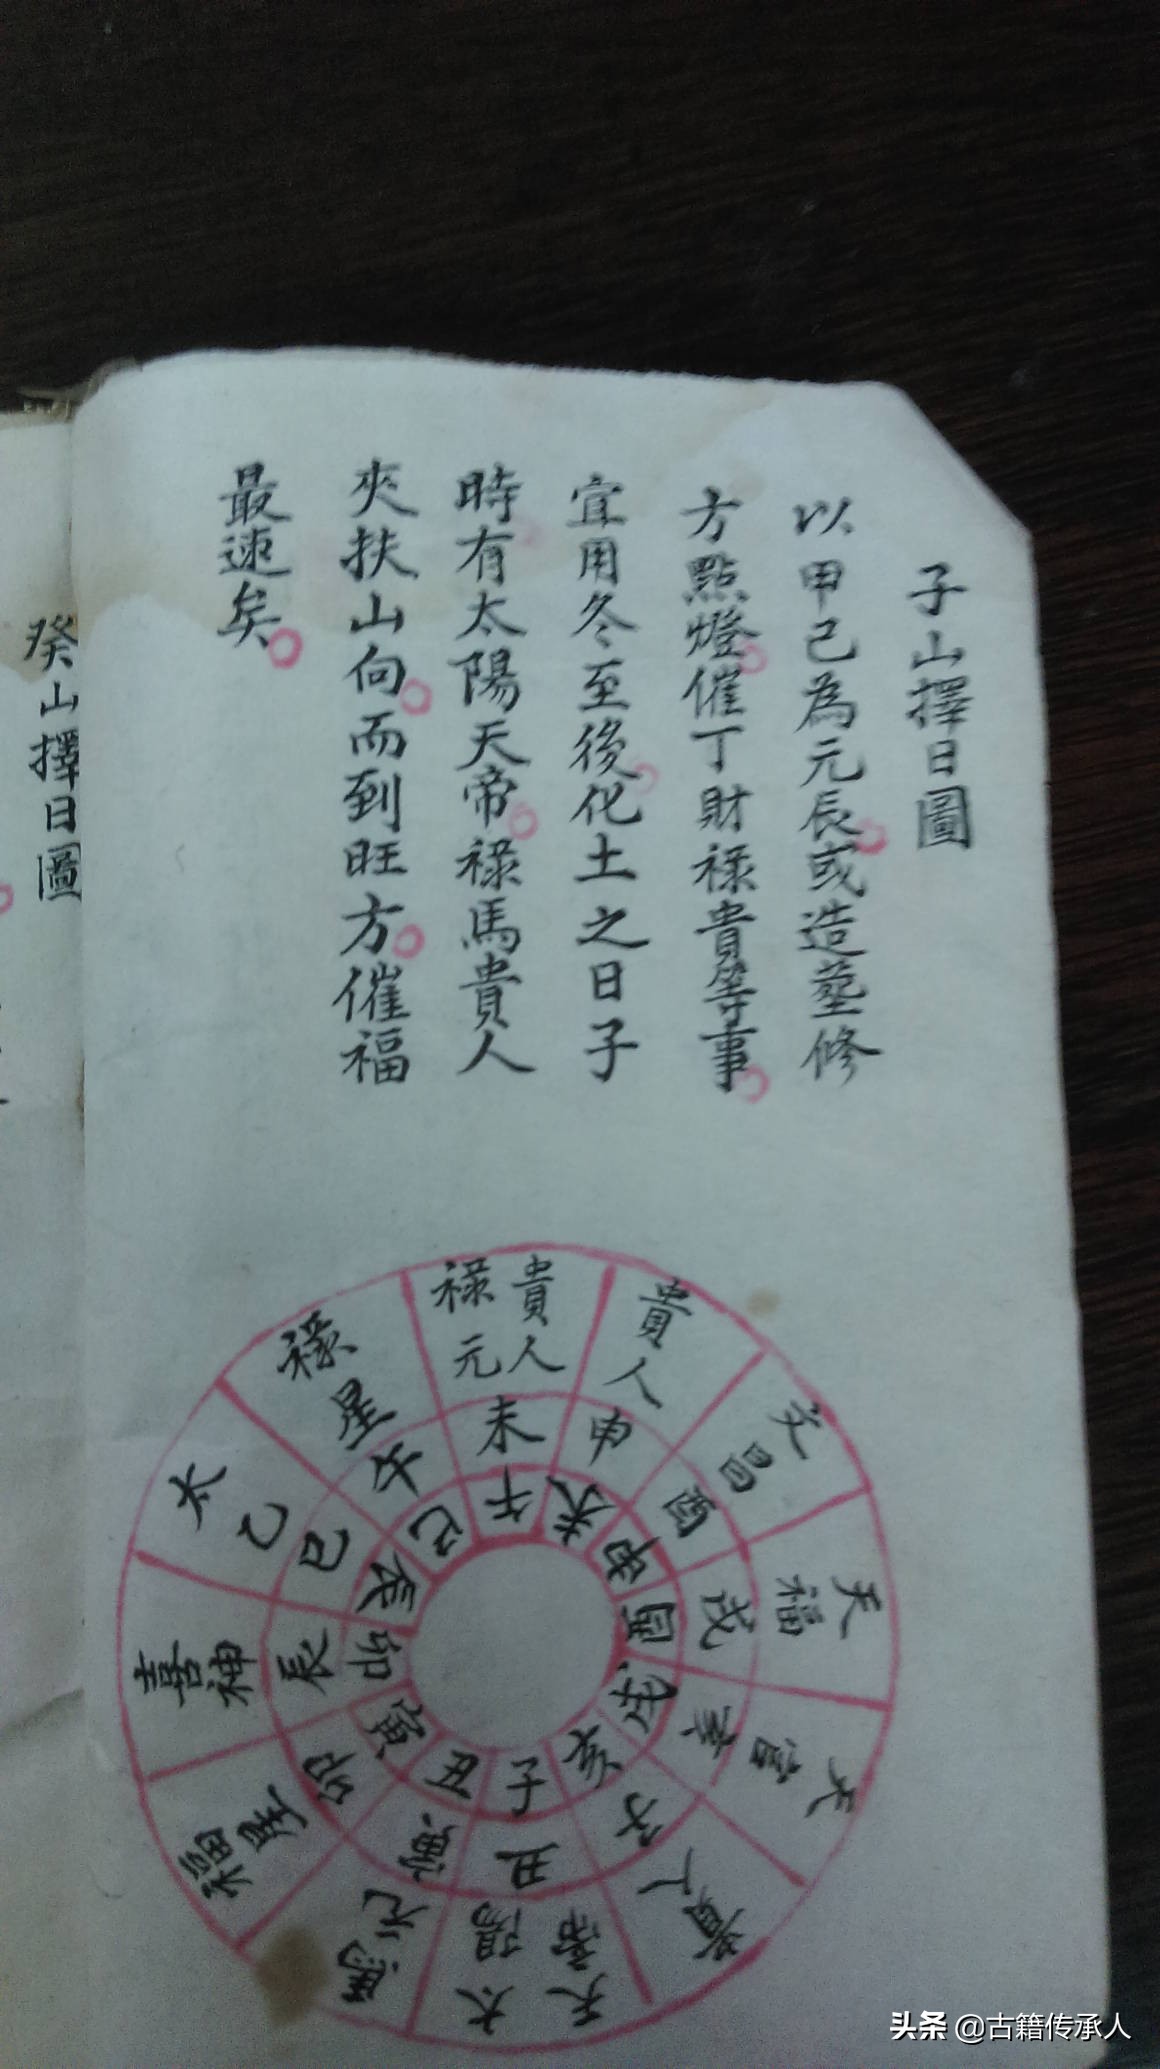 子山擇日圖
以甲己為元辰或造塟修
方點燈催丁財禄貴等事
宜用冬至後化土之日子
時有太陽天帝禄馬貴人
夾扶山向而到旺方催福
最速矣
癸山擇日圖
禄元 貴人
貴人
文昌
天福
天官
貴人
太陽 天帝
馬元
福星
喜神
太乙
禄星
未
申
酉
戌
亥
子
丑
寅
卯
辰
巳
午
午
未
申
酉
戌
亥
子
丑
寅
卯
辰
巳
头条 @古籍传承人